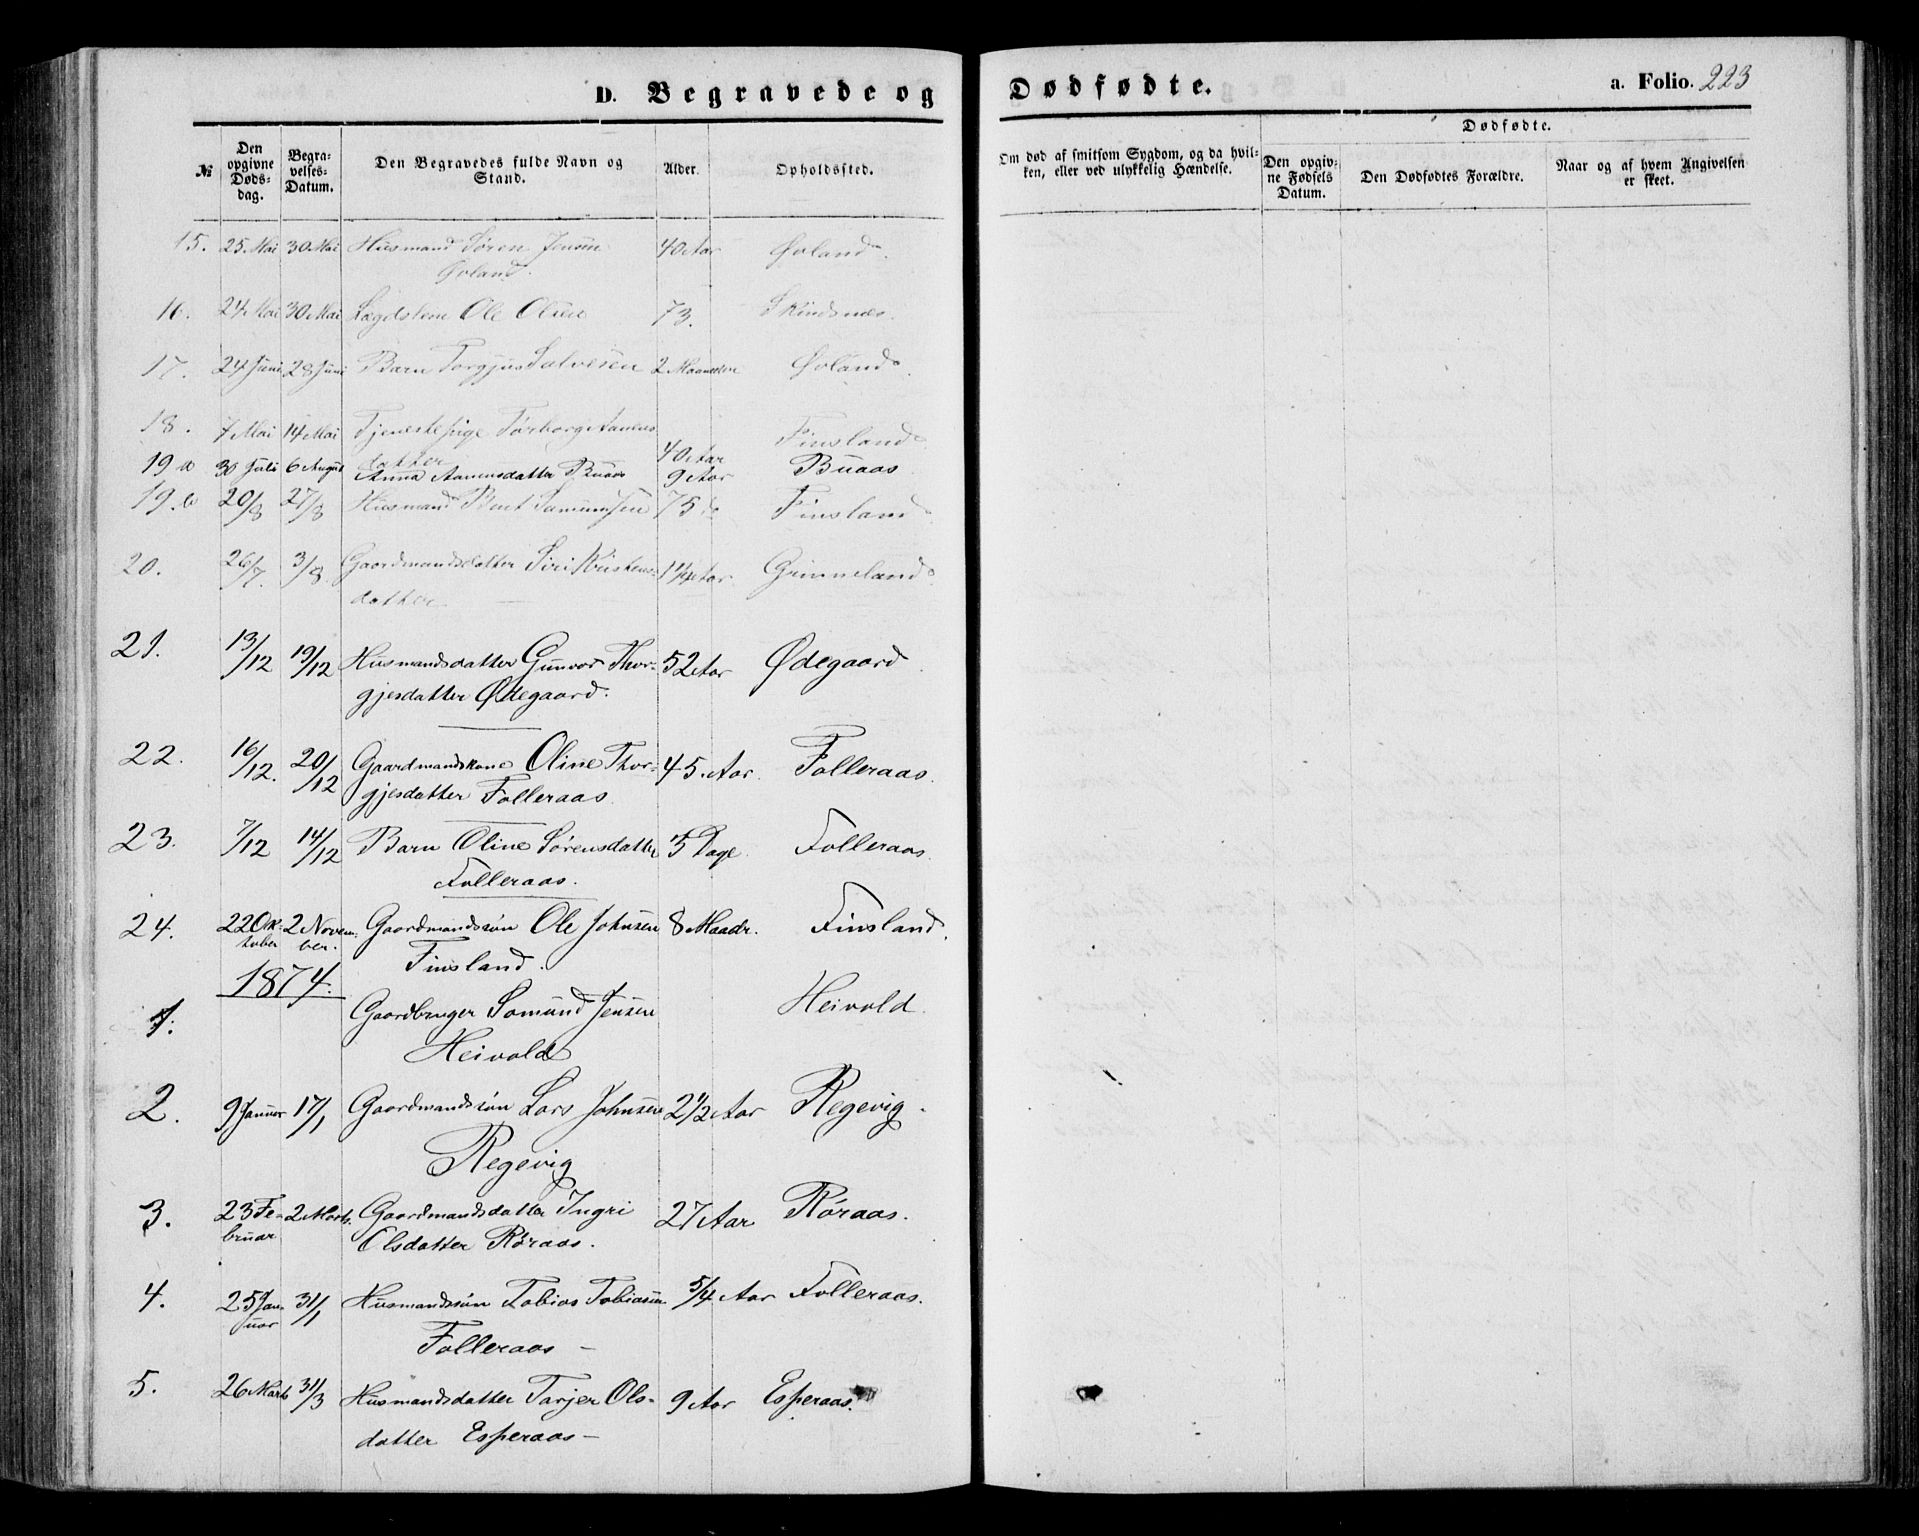 D. Begravede og Dødfødte. a. Folio. 223
№
Den opgivne Døds-dag.
Begra-velses-Datum.
Den Begravedes fulde Navn og Stand.
Alder.
Opholdssted.
Om død af smitsom Sygdom, og da hvil-
ken, eller ved ulykkelig Hændelse.
Dødfødte.
Den opgiv-ne Fødsels Datum.
Den Dødfødtes Forældre.
Naar og af hvem Angivelsen er skeet.
15. 25. Mai 30 Mai Husmand Søren Jensen 40 Aar Øvland.
Øvland.
16. 24 Mai 30 Mai Lægdslem Ole Olsen 73. Skindsnes.
17. 24 Juni 28 Juni Barn Torgjus Salvesen 2 Maaneder Øvland.
18. 7 Mai 14 Mai Tjenestepige Torborg Aanens- Finsland
datter 40 Aar
19 a 30 Juli 6 August Anna Aanensdatter Buaas 9 Aar Buaas
19. b 20/8 27/8 Husmand Bent 75 do Finsland
20. 26/7. 3/8 Gaardmandsdatter Siri Kristens- 1 1/4 Aar Grimeland.
datter
21. 13/12 19/12 Husmandsdatter Gunvor Thor- 52 Aar Ødegaard.
gjesdatter Ødegaard.
22. 16/12. 20/12 Gaardmandskone Oline Thor- 45. Aar. Folleraas.
gjesdatter Folleraas.
23. 7/12 14/12 Barn Oline Sørensdatter 5 Dage. Folleraas.
Folleraas.
24. 22 Ok- 2 Novem- Gaardmandssøn Ole Johnsen 8 Maadr. Finsland.
tober ber. Finsland.
1874.
1. Gaardbruger Somund Jensen Heivold.
Heivold
2. 9 Januar 17/1 Gaardmandssøn Lars Johnsen 2 1/2 Aar Regevig.
Regevig
3. 23 Fe- 2 Marts. Gaardmandsdatter Ingri 27 Aar Røraas.
bruar Olsdatter Røraas.
4. 25 Jan- 31/1 Husmandssøn Tobias Tobiassen 5/4 Aar Folleraas.
uar Folleraas -
5. 26 Marts 31/3 Husmandsdatter Tarjer Ols- 9 Aar Esperaas.
datter Esperaas -